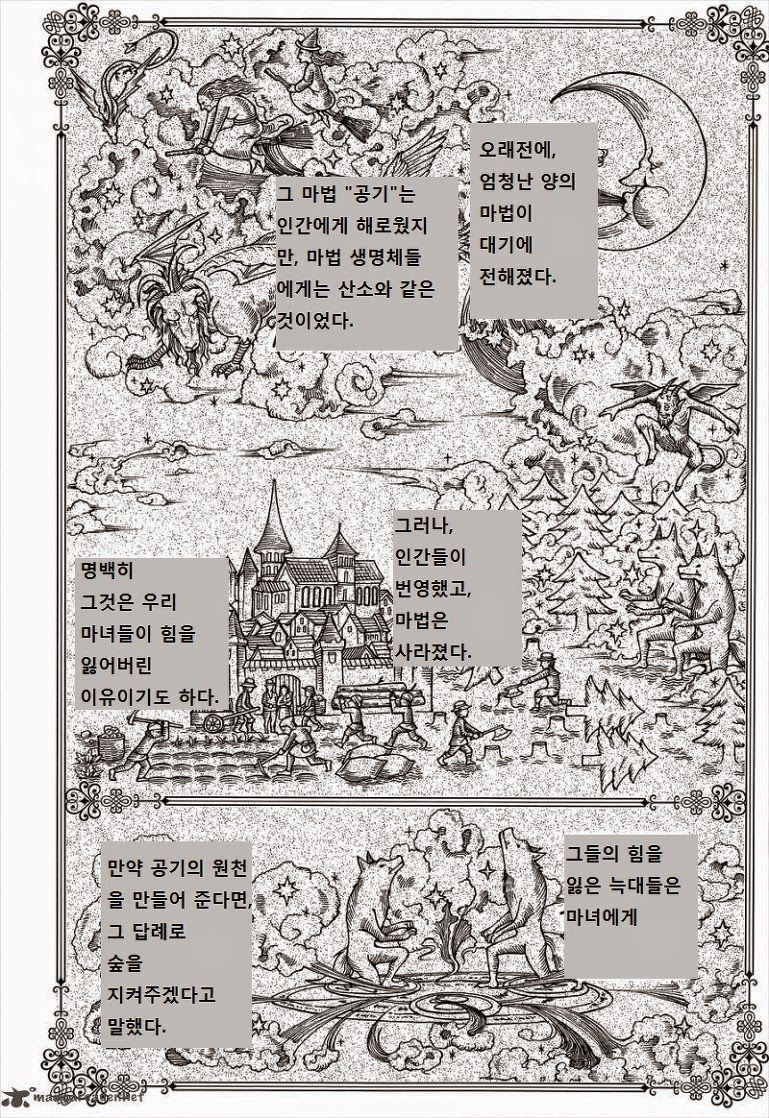 오래전에,
엄청난 양의
마법이
대기에
전해졌다.
그 마법 "공기"는
인간에게 해로웠지
만, 마법 생명체들
에게는 산소와 같은
것이었다.
그러나,
인간들이
번영했고,
마법은
사라졌다.
명백히
그것은 우리
마녀들이 힘을
잃어버린
이유이기도 하다.
그들의 힘을
잃은 늑대들은
마녀에게
만약 공기의 원천
을 만들어 준다면,
그 답례로
숲을
지켜주겠다고
말했다.